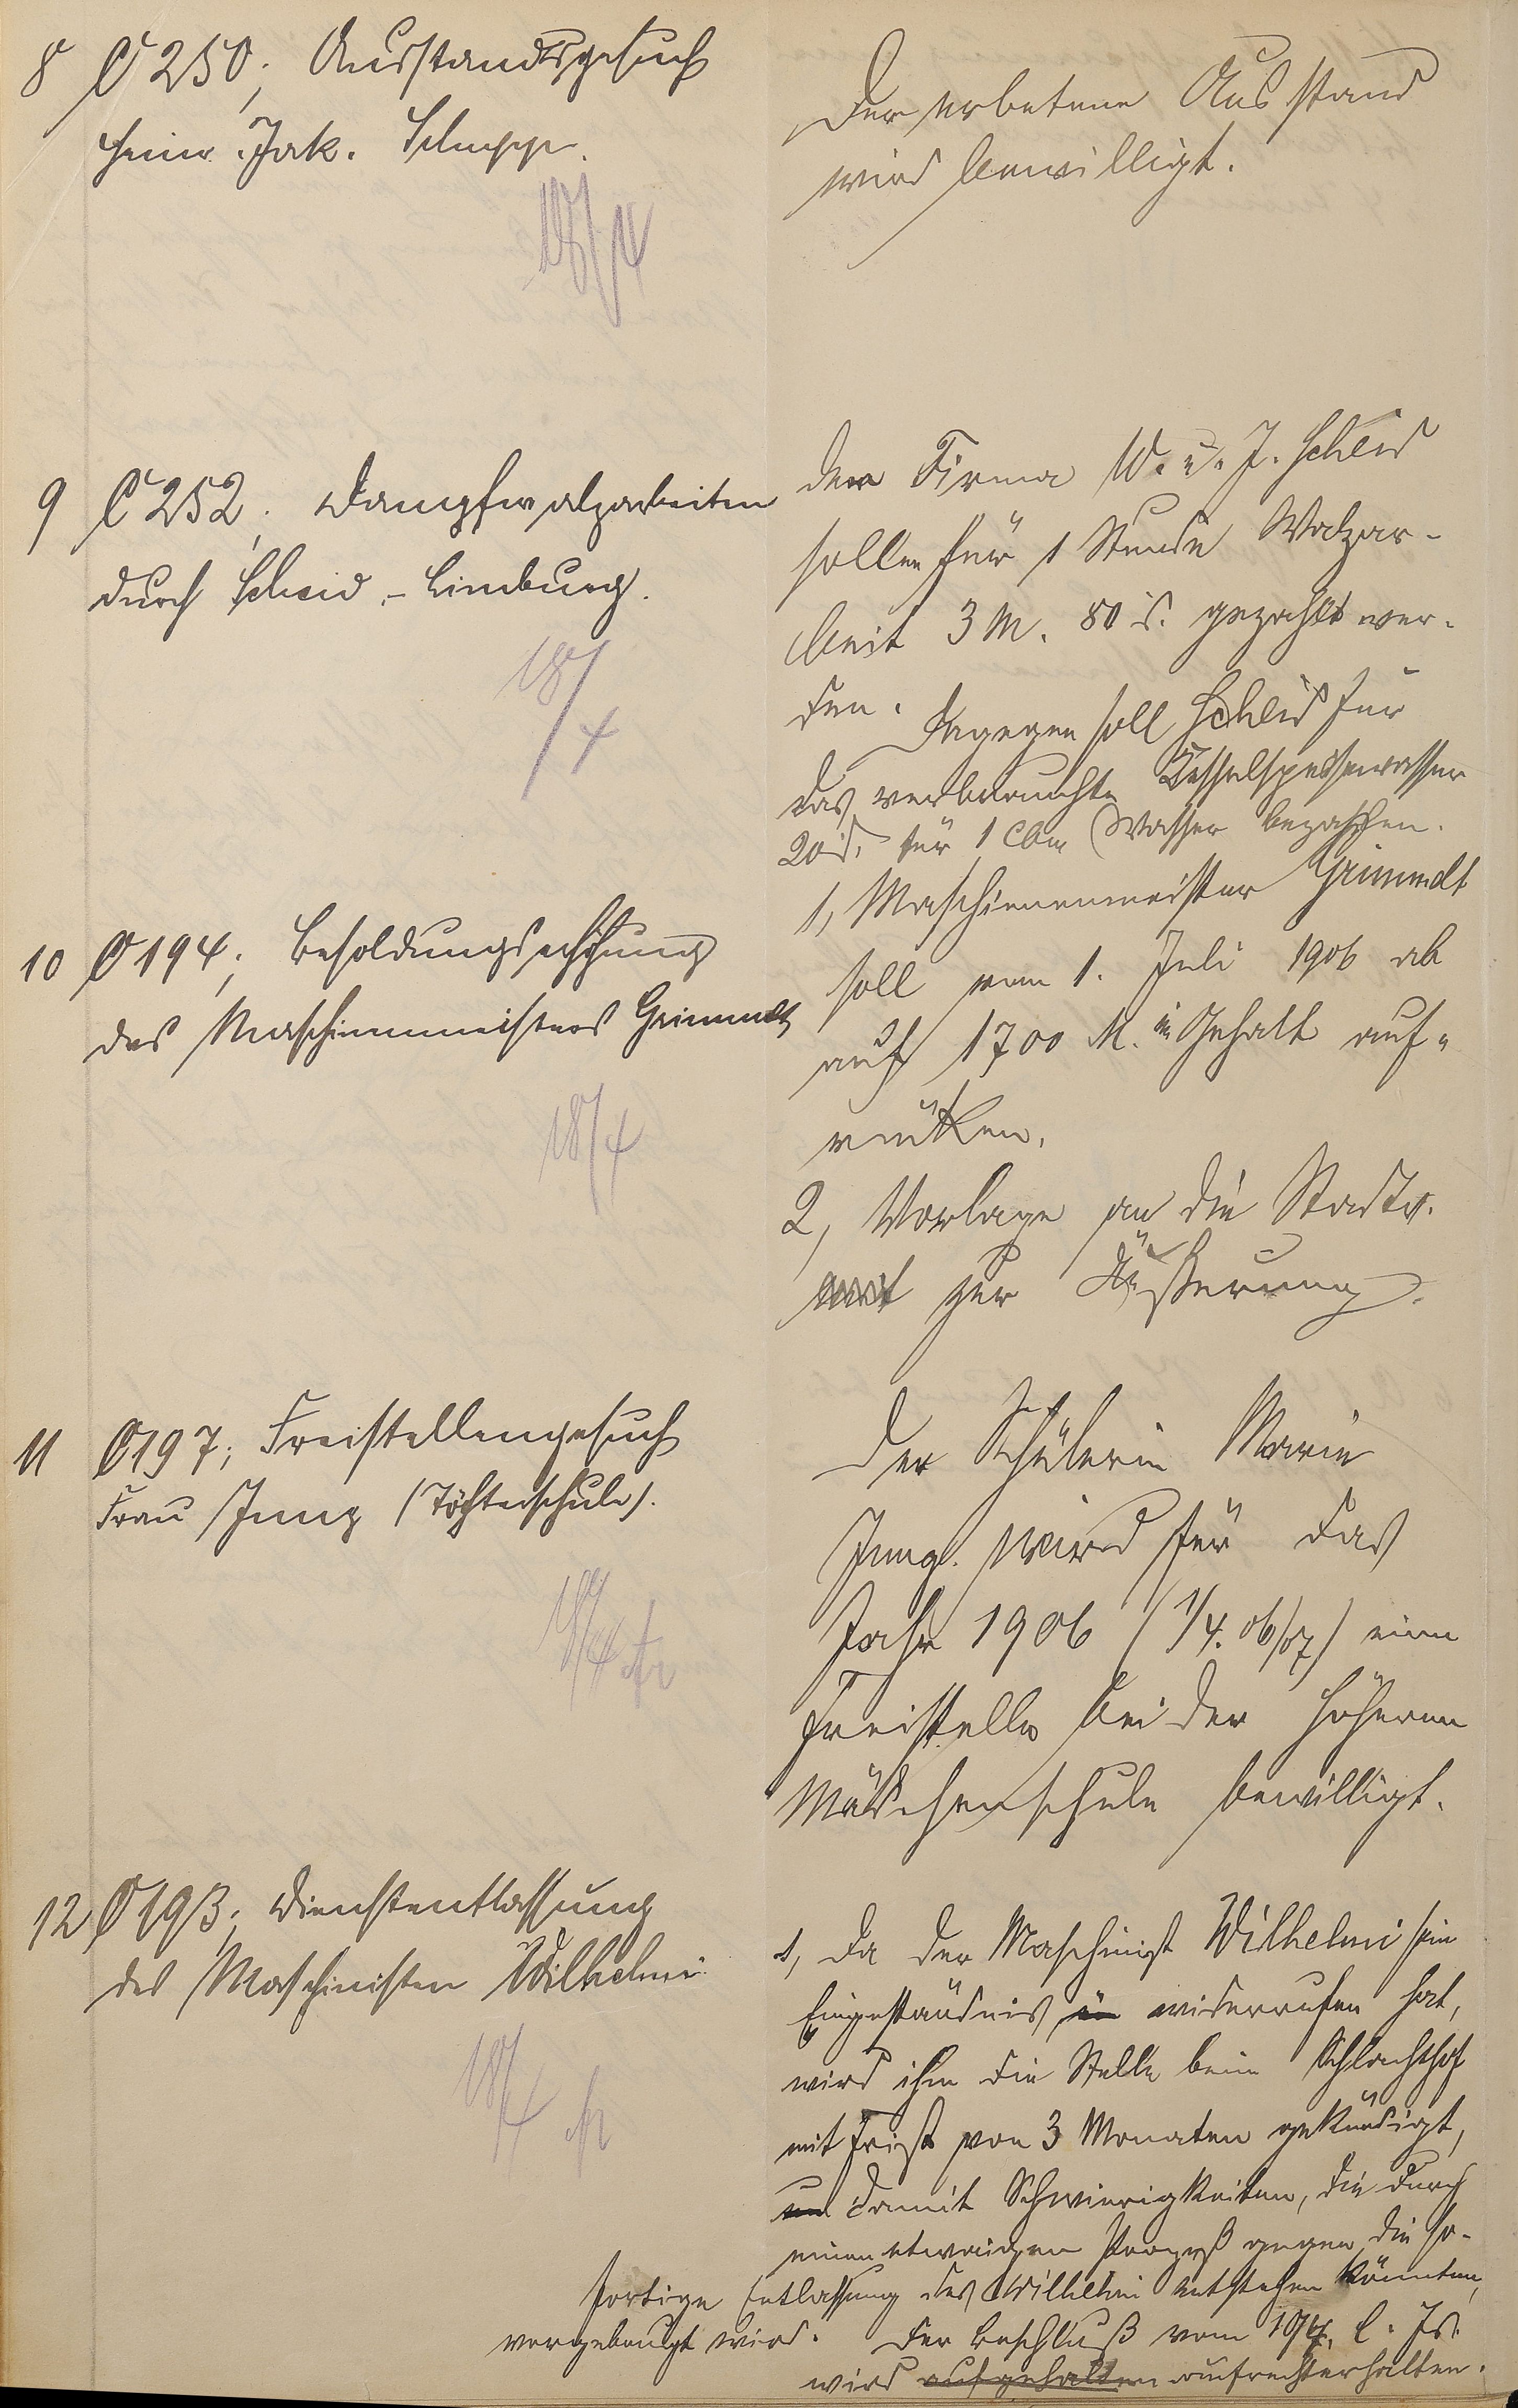 8 C 250; Ausstandsgesuch
Heinr. Jak. Schupp.
18/4
Der erbetene Ausstand
wird bewilligt.
9 C 252; Dampfwalzarbeiten
durch Scheid-Limburg.
18/4
Der Firma W. u. J. Scheid
sollen für 1 Stunde Walzar-
beit 3 M. 80 d. gezahlt wer-
den. Dagegen soll Scheid für
das verbrauchte Kesselspeisewasser
20 d. für 1 cbm Wasser bezahlen.
10 C 194; Besoldungserhöhung
des Maschinenmeisters Grimmdt
18/4
1, Maschinenmeister Grimmdt
soll vom 1. Juli 1906 ab
auf 1700 M. in Gehalt auf-
rücken.
2, Vorlage an die Stadtv.
zur Äußerung.
11 C 197; Freistellengesuch
Frau Jung (Töchterschule).
18/4
Der Schülerin Marie
Jung wird für das
Jahr 1906 (1/4. 06/07) eine
Freistelle bei der höheren
Mädchenschule bewilligt.
12 C 193; Dienstentlassung
des Maschinisten Wilhelmi
18/4
1, Da der Maschinist Wilhelmi sein
Eingeständnis widerrufen hat,
wird ihm die Stelle beim Schlachthof
mit Frist von 3 Monaten gekündigt,
damit Schwierigkeiten, die durch
einen etwaigen Prozeß gegen die so-
fortige Entlassung des Wilhelmi entstehen könnten,
vorgebeugt wird. Der Beschluß vom l. Js.
wird aufgehalten aufrechterhalten.